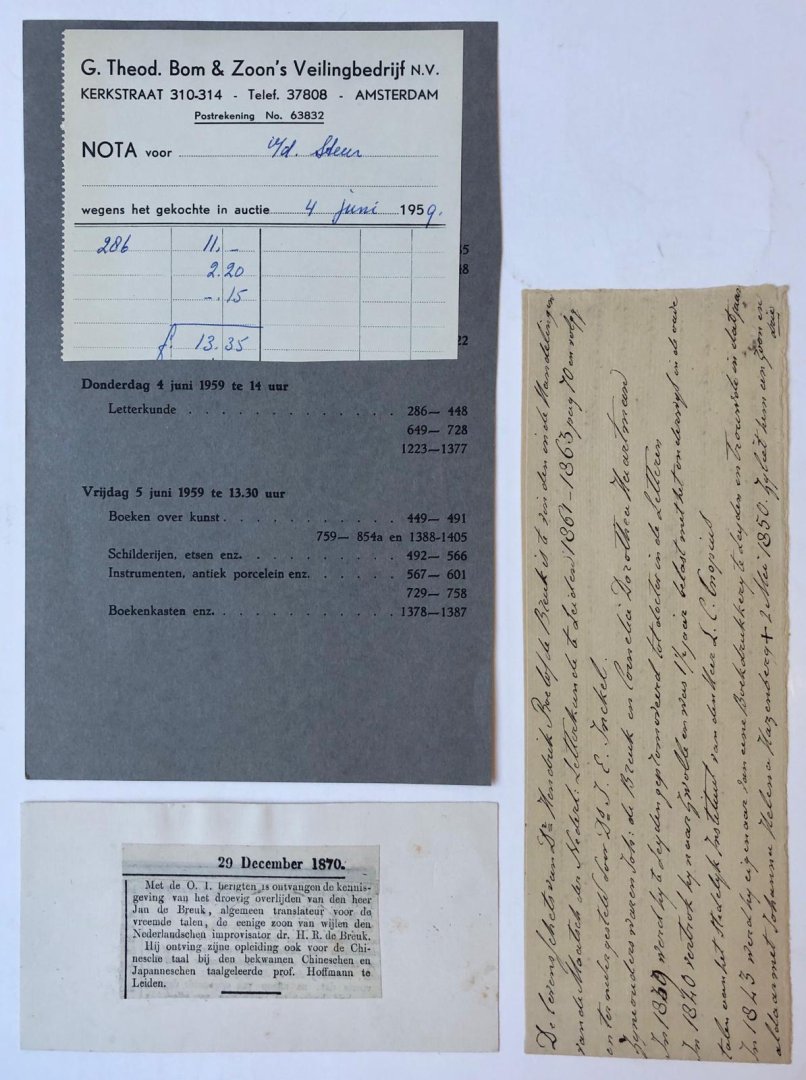 G. Theod. Bom & Zoon's Veilingbedrijf N.V.
KERKSTRAAT 310-314 - Telef. 37808 - AMSTERDAM
Postrekening No. 63832
NOTA voor v/d. Steur
wegens het gekochte in auctie 4 juni 1959.
286 11,-
2.20
-.15
f. 13.35
Donderdag 4 juni 1959 te 14 uur
Letterkunde . . . . . . . . . . . . . 286— 448
649— 728
1223—1377
Vrijdag 5 juni 1959 te 13.30 uur
Boeken over kunst . . . . . . . . . . . 449— 491
759— 854a en 1388-1405
Schilderijen, etsen enz. . . . . . . . . . 492— 566
Instrumenten, antiek porcelein enz. . . . . . 567— 601
729— 758
Boekenkasten enz. . . . . . . . . . . . 1378—1387
29 December 1870.
Met de O. I. berigten is ontvangen de kennis-
geving van het droevig overlijden van den heer
Jan de Breuk, algemeen translateur voor de
vreemde talen, de eenige zoon van wijlen den
Nederlandschen improvisator dr. H. R. de Breuk.
Hij ontving zijne opleiding ook voor de Chi-
nesche taal bij den bekwamen Chineschen en
Japanneschen taalgeleerde prof. Hoffmann te
Leiden.
De levensschets van Dr Hendrik Roelof de Breuk is te vinden in de Handelingen
van de Maatsch. der Nederl: Letterkunde te Leiden 1861-1863 pag 70 en volgg
en ter nedergesteld door Ds J. E. Inckel.
Zyne ouders waren Joh: de Breuk en Cornelia Dorothea Haartman
In 1839 werd hy te Leyden gepromoveerd tot doctor in de Letteren
In 1840 vertrok hy naar Zwolle en was 1½ jaar belast met het onderwys in de oude
talen van het Stedelyk Instituut van den Heer L. C.
In 1843 werd hy eigenaar van eene Boekdrukkery te Leyden en trouwde in dat jaar
aldaar met Johanna Helena Hazenberg + 2 Mei 1850. Zy liet hem een Zoon en